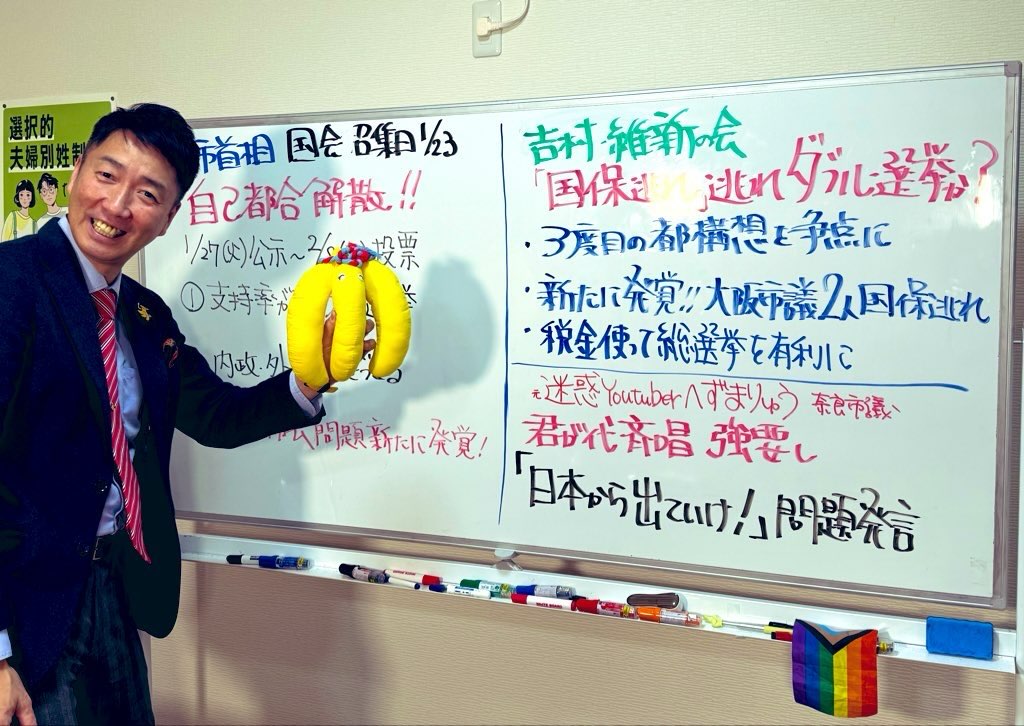 選択的
夫婦別姓制
市首相 国会 召集日 1/23
自己都合解散!!
1/27(火)公示～2/8 投票
① 支持率が
内政・外
問題新たに発覚!
吉村・維新の会
「国保逃れ」逃れダブル選挙か?
・3度目の都構想を争点に
・新たに発覚!!大阪市議2人国保逃れ
・税金使って総選挙を有利に
元迷惑Youtuberへずまりゅう 奈良市議、
君が代斉唱 強要し
「日本から出ていけ!」問題発言